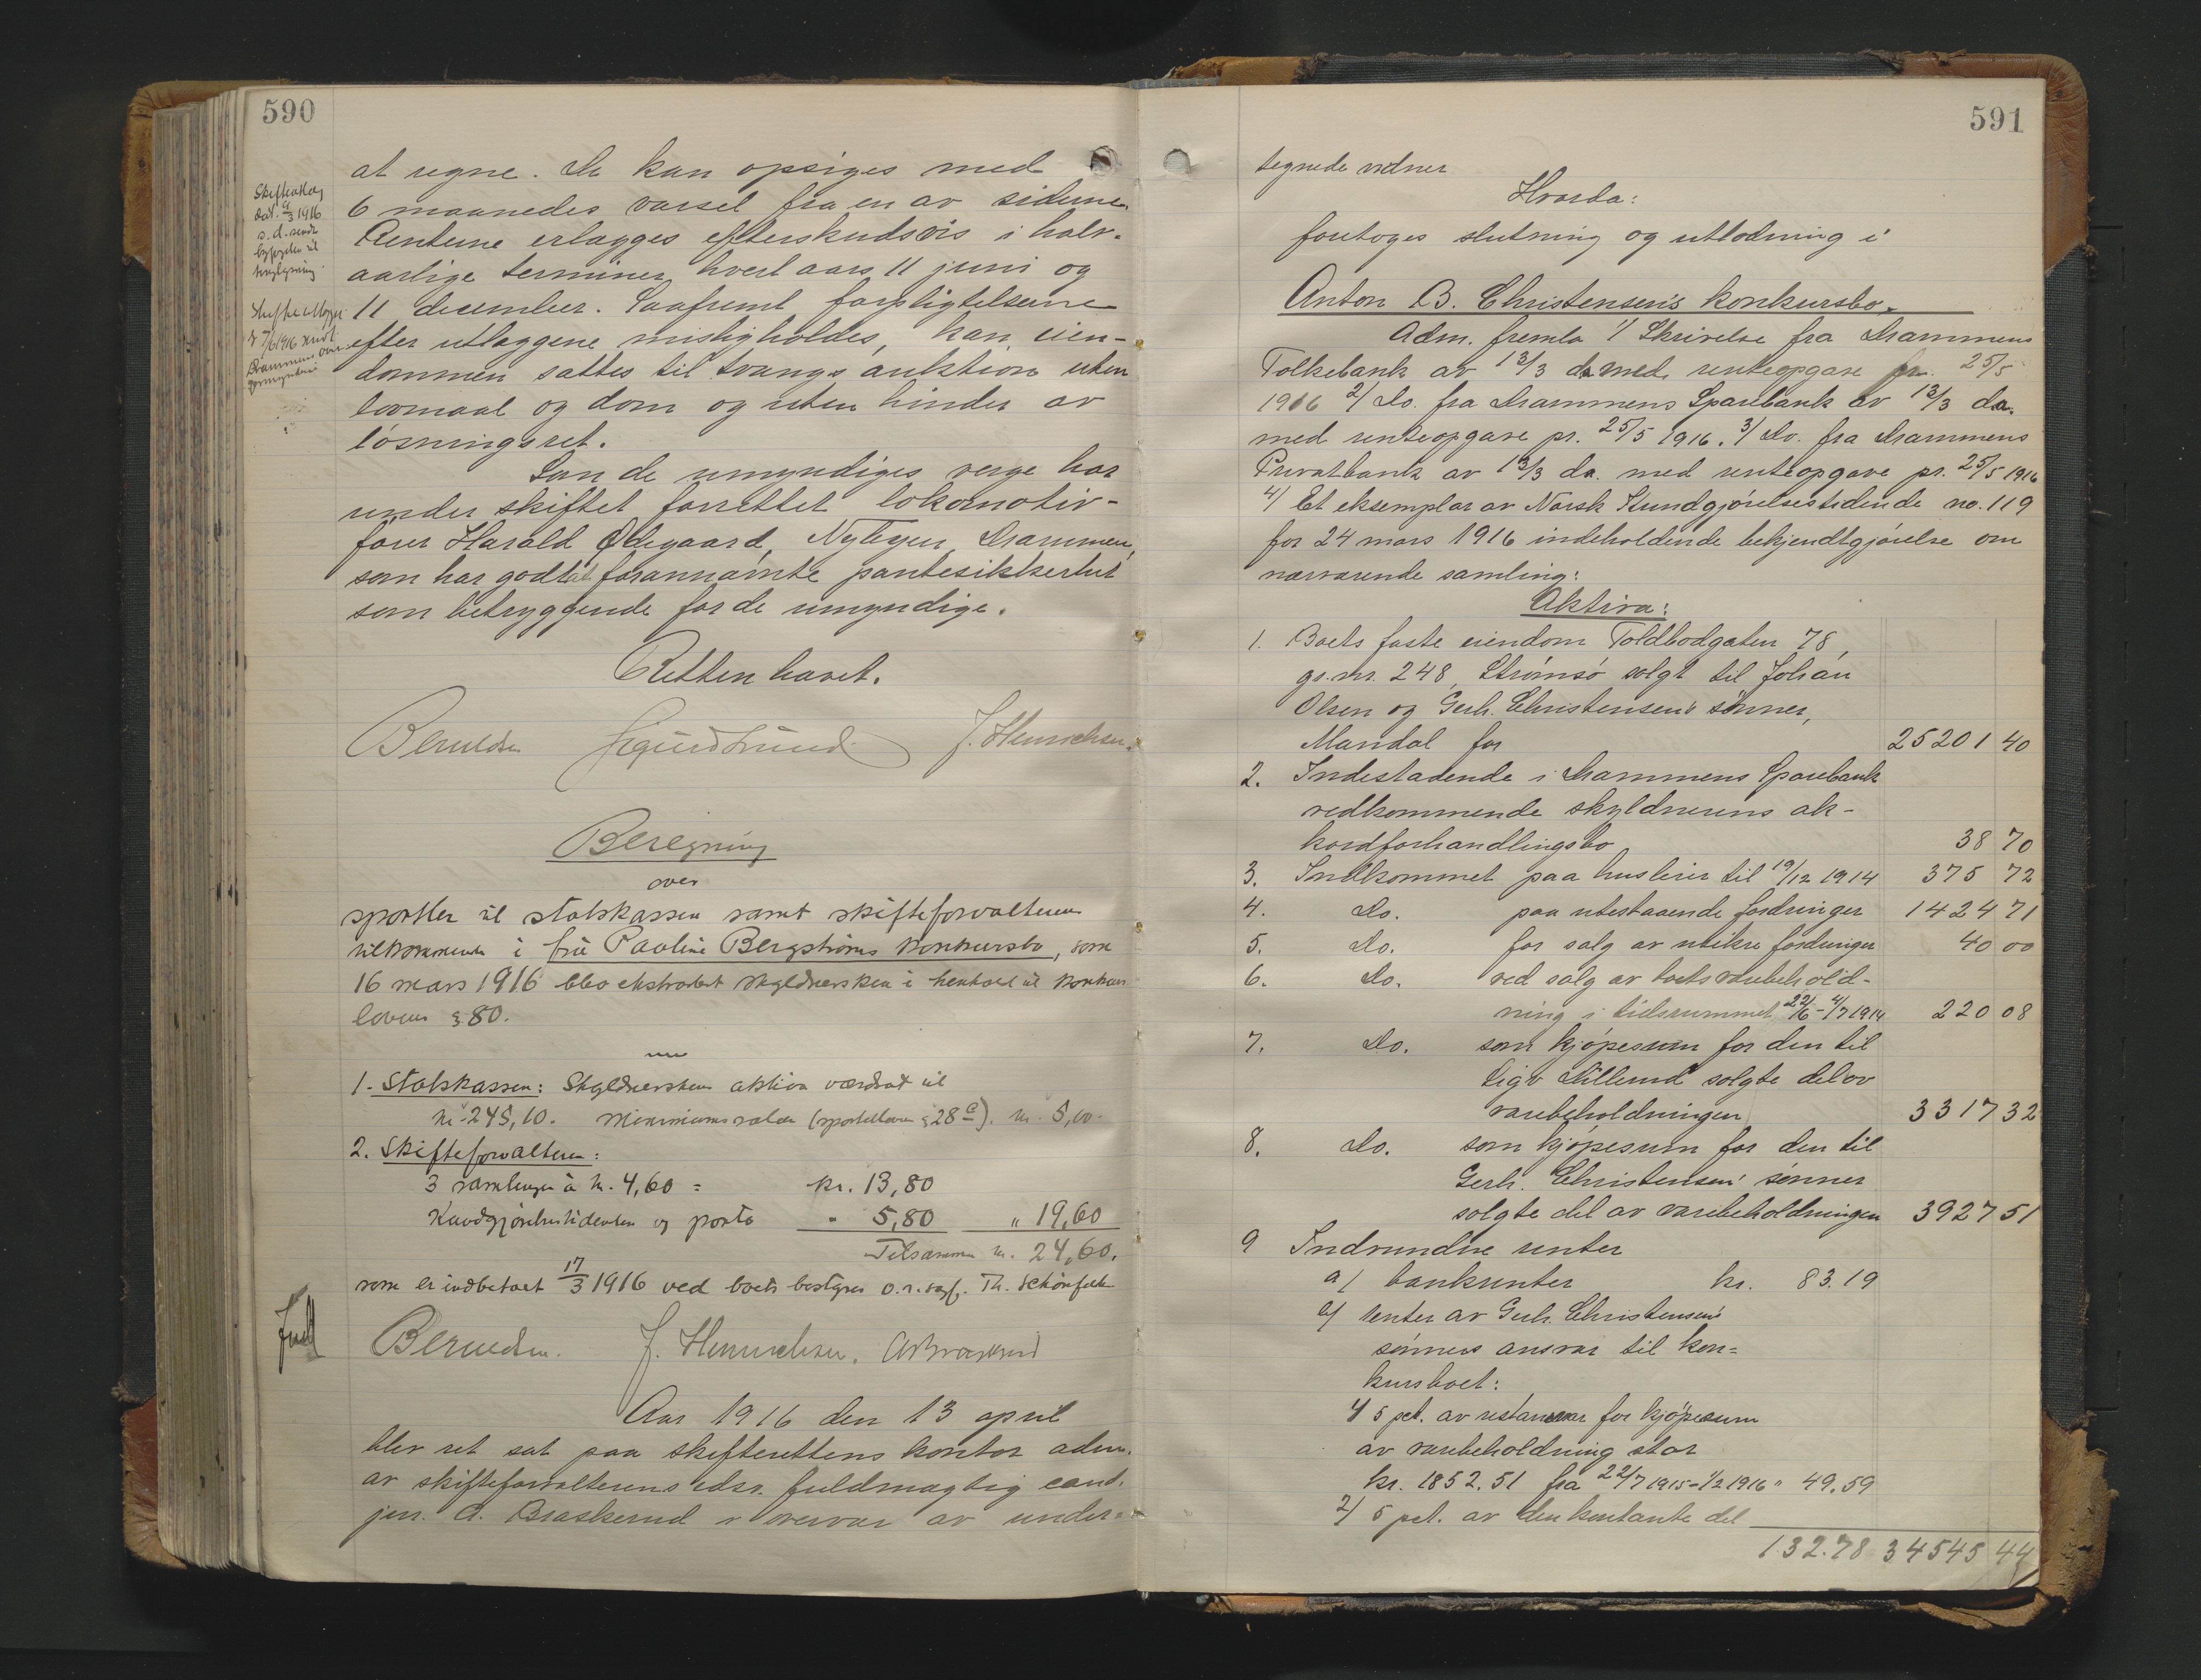 590
Skifteutlæg
dat. 9/3 1916
s. d. sendt
til
tinglysning.
Skifteutlægget
7/6 1916 sendt
Drammens over-
formynderi
at regne. De kan opsiges med
6 maaneders varsel fra en av siderne.
Renterne erlægges efterskudsvis i halv-
aarlige terminer, hvert aars 11 juni og
11 december. Saafremt forpligtelserne
efter utlæggene misligholdes, kan eien-
dommen sættes til tvangsauktion uten
lovmaal og dom og uten hinder av
løsningsret.
Som de umyndiges verge har
under skiftet forrettet lokomotiv-
fører Harald Ødegaard, Nylegen, Drammen,
som har godtat forannævnte pantesikkerhet
som betryggende for de umyndige.
Retten hævet.
Berulsen Sigurd Lund. J. Hennichsen.
Beregning
over
sportler til statskassen samt skifteforvalteren
tilkommende i fru Pauline Bergstrøms konkursbo, som
16 mars 1916 blev ekstradert skyldnersken i henhold til konkurs
lovens § 80.
1. Statskassen: Skyldnerskens aktiva værdsat til
kr. 245,10. Minimumssatsen (sportelloven § 28 a). kr. 5,00.
2. Skifteforvalteren:
3 samlinger à kr. 4,60 = kr. 13,80
Kundgjørelsestidenden og porto " 5,80 " 19,60
Tilsammen kr. 24,60.
som er indbetalt 17/3 1916 ved boets bestyrer o.r.sagf. Th. Schönfelder
Berulsen. J. Hennichsen. A Braskerud
Aar 1916 den 13 april
blev ret sat paa skifterettens kontor adm.
av skifteforvalterens edsv. fuldmægtig cand.
jur. A. Braskerud i overvær av under-
591
tegnede vidner
Hvorda:
foretoges slutning og utlodning i
Anton B. Christensen's konkursbo.
Adm. fremla 1/ Skrivelse fra Drammens
Folkebank av 13/3 d.a. med renteopgave pr. 25/5
1916 2/ Do. fra Drammens Sparebank av 13/3 d.a.
med renteopgave pr. 25/5 1916. 3/ Do. fra Drammens
Privatbank av 13/3 d.a. med renteopgave pr. 25/5 1916
4/ Et eksemplar av Norsk Kundgjørelsestidende no. 119
for 24 mars 1916 indeholdende bekjendtgjørelse om
nærværende samling:
Aktiva:
1. Boets faste eiendom Toldbodgaten 78,
gr.nr. 248, Strømsø solgt til Johan
Olsen og Gerh. Christensen's sønner,
Mandal for 25201 40
2. Indestaaende i Drammens Sparebank
vedkommende skyldnerens ak-
kordforhandlingsbo 38 70
3. Indkommet paa husleier til 19/12 1914 375 72
4. Do. paa utestaaende fordringer 1424 71
5. Do. for salg av usikre fordringer 40 00
6. Do. ved salg av boets varebehold-
ning i tidsrummet 22/6 - 4/7 1914 220 08
7. Do. som kjøpesum for den til
Sigv. Lillerud solgte del av
varebeholdningen 3317 32
8. Do. som kjøpesum for den til
Gerh. Christensen's sønner
solgte del av varebeholdningen 3927 51
9 Indvundne renter
a/ bankrenter kr. 83.19
b/ renter av Gerh. Christensen's
sønners ansvar til kon=
kursboet:
1/ 5 pct. av restansen for kjøpesum
av varebeholdning stor
kr. 1852.51 fra 22/7 1915 - 1/2 1916 " 49.59
2/ 5 pct. av den kontante del
132.78 34545 44